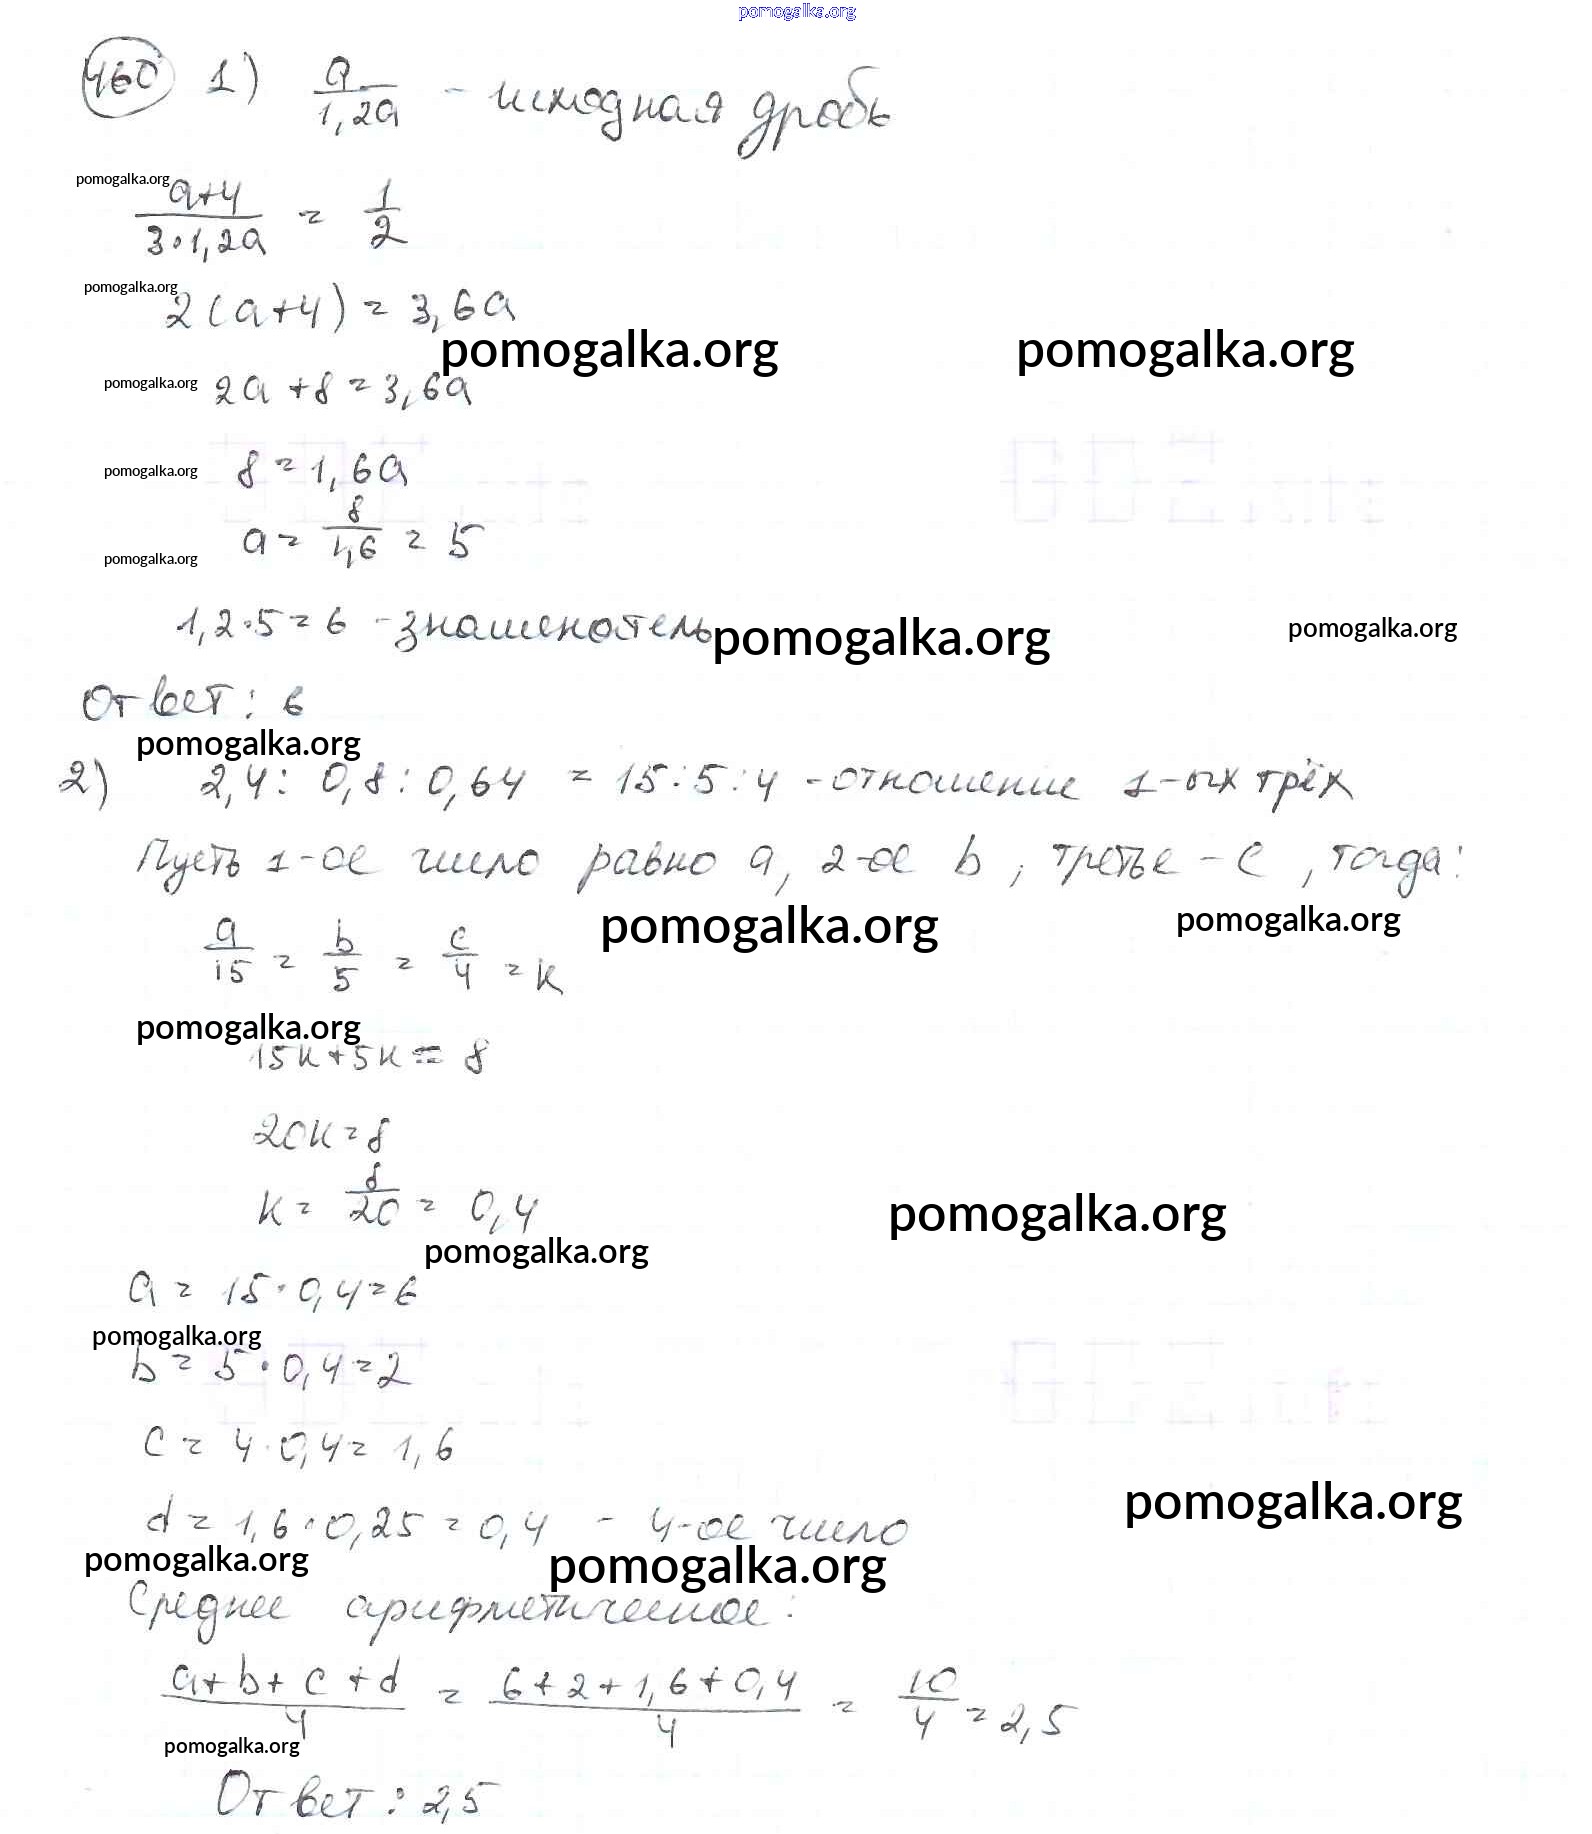 pomogalka.org
460 1) a/1,2a - исходная дробь
pomogalka.org
a+4/3·1,2a = 1/2
pomogalka.org
2(a+4) = 3,6a
pomogalka.org pomogalka.org
pomogalka.org 2a+8=3,6a
pomogalka.org 8=1,6a
a = 8/1,6 = 5
pomogalka.org
1,2·5=6 - знаменатель pomogalka.org pomogalka.org
Ответ: 6
pomogalka.org
2) 2,4 : 0,8 : 0,64 = 15:5:4 - отношение 1-ых трёх
Пусть 1-ое число равно a, 2-ое b, третье - c, тогда:
pomogalka.org pomogalka.org
a/15 = b/5 = c/4 = k
pomogalka.org
15k+5k=8
20k=8
k = 8/20 = 0,4
pomogalka.org
pomogalka.org
a = 15·0,4=6
pomogalka.org
b = 5·0,4=2
c = 4·0,4=1,6
pomogalka.org
d = 1,6·0,25=0,4 - 4-ое число
pomogalka.org pomogalka.org
Среднее арифметическое:
a+b+c+d/4 = 6+2+1,6+0,4/4 = 10/4 = 2,5
pomogalka.org
Ответ: 2,5